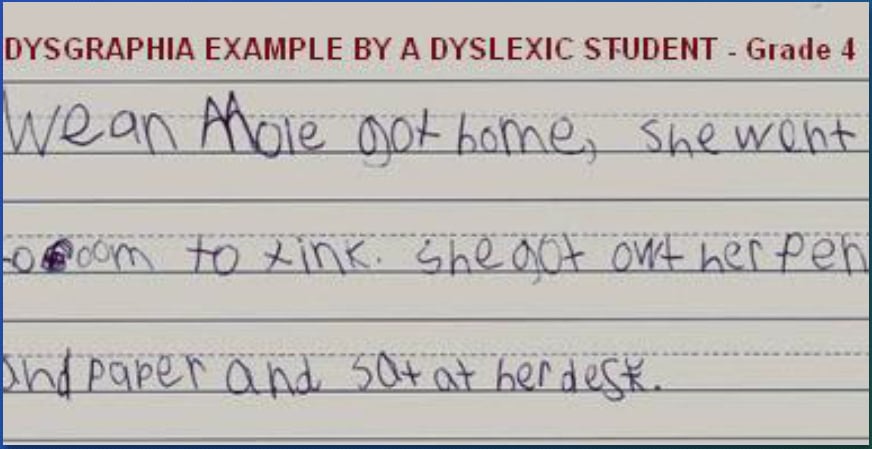 DYSGRAPHIA EXAMPLE BY A DYSLEXIC STUDENT - Grade 4
Wean Mole got home, she went
to room to tink. she got owt her pen
and paper and sat at her desk.